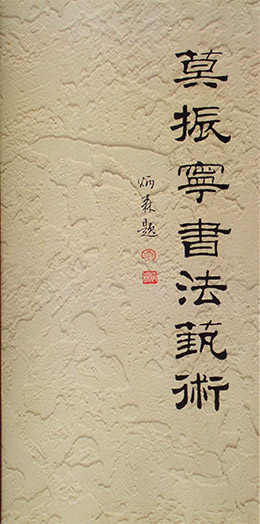 莫振寧書法藝術
炳森題